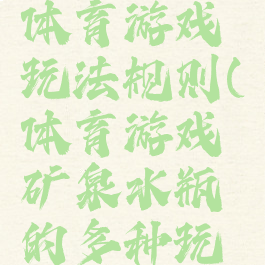 体育游戏
玩法规则(
体育游戏
矿泉水瓶
的多种玩